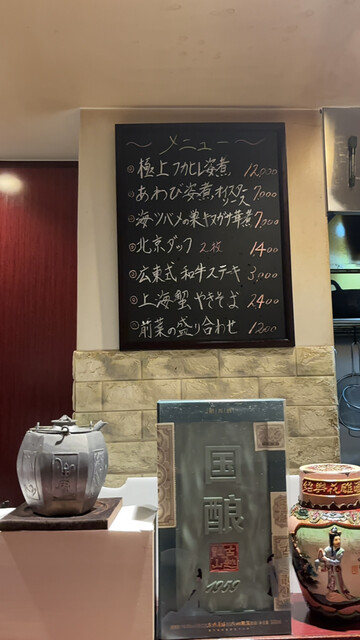 ～メニュー～
極上フカヒレ姿煮 12,000
あわび姿煮オイスターソース 7,000
海ツバメの巣キヌガサ茸煮 7,000
北京ダック 2枚 1400
広東式 和牛ステーキ 3,000
上海蟹やきそば 2400
前菜の盛り合わせ 1200
国
酿
1959